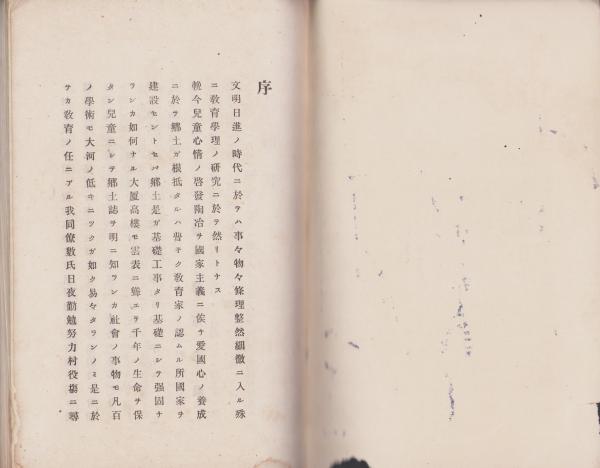 序
文明日進ノ時代ニ於テハ事々物々條理整然細微ニ入ル殊
ニ敎育學理ノ硏究ニ於テ然リトナス
輓今兒童心情ノ啓發陶冶ヲ國家主義ニ俟チ愛國心ノ養成
ニ於テ鄕土ガ根抵タルハ普モク敎育家ノ認ムル所國家ヲ
建設セントセバ鄕土是ガ基礎工事タリ基礎ニシテ强固ナ
ランカ如何ナル大厦高樓モ雲表ニ聳エテ千年ノ生命ヲ保
タン兒童ニシテ鄕土誌ヲ明ニ知ランカ社會ノ事物モ凡百
ノ學術モ大河ノ低キニツクガ如ク易々タランノミ是ニ於
テカ敎育ノ任ニアル我同僚數氏日夜勤勉努力村役塲ニ尋